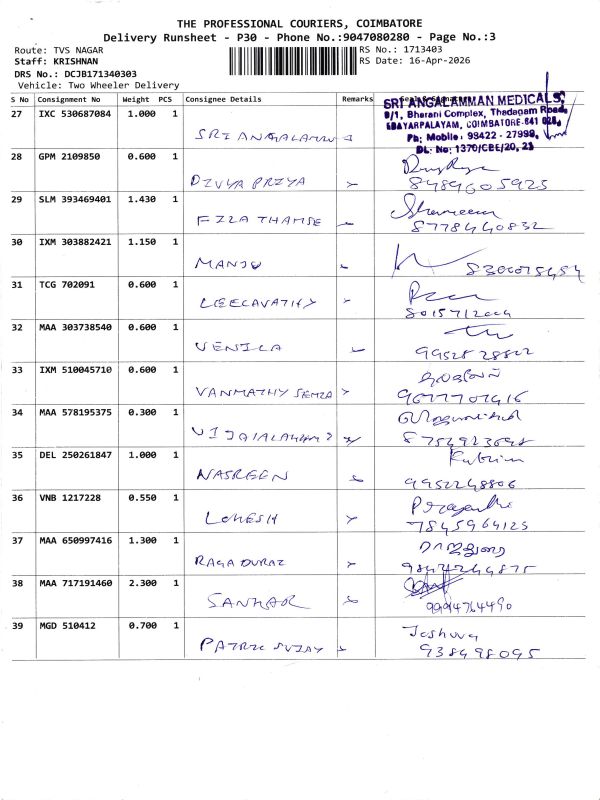 THE PROFESSIONAL COURIERS, COIMBATORE
Delivery Runsheet - P30 - Phone No.:9047080280 - Page No.:3
Route: TVS NAGAR RS No.: 1713403
Staff: KRISHNAN RS Date: 16-Apr-2026
DRS No.: DCJB171340303
Vehicle: Two Wheeler Delivery
S No Consignment No Weight PCS Consignee Details Remarks
SRI ANGALAMMAN MEDICALS,
9/1, Bharani Complex, Thadagam Road,
COIMBATORE-641 025,
Ph; Mobile: 98422 - 27999,
DL: No: 1370/CBE/20, 21
27 IXC 530687084 1.000 1
28 GPM 2109850 0.600 1 DIVYA PRIYA
8489605925
29 SLM 393469401 1.430 1 FIZA THAMSE
8778440832
30 IXM 303882421 1.150 1 MANJU
31 TCG 702091 0.600 1 LEELAVATHY
32 MAA 303738540 0.600 1 VENILA
33 IXM 510045710 0.600 1 VANMATHY
9677707416
34 MAA 578195375 0.300 1
35 DEL 250261847 1.000 1 NASREEN
9952248806
36 VNB 1217228 0.550 1 LOKESH
7845964125
37 MAA 650997416 1.300 1 RAGA DURAI
38 MAA 717191460 2.300 1 SANKAR
9994764490
39 MGD 510412 0.700 1 PATRIC SUJAY
Joshuva
938498095